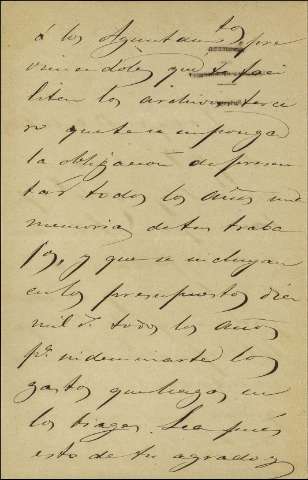 á los Ayuntamtos pre
viniendoles que te faci
liten los archivos, terce
ro que te se imponga
la obligacion de presen
tar todos los años una
memoria de tus traba
jos, y que se incluyan
en los presupuestos diez
mil r. todos los años
pª indemnizarte los
gastos que hagas en
los viages. Sea pues
esto de tu agrado y